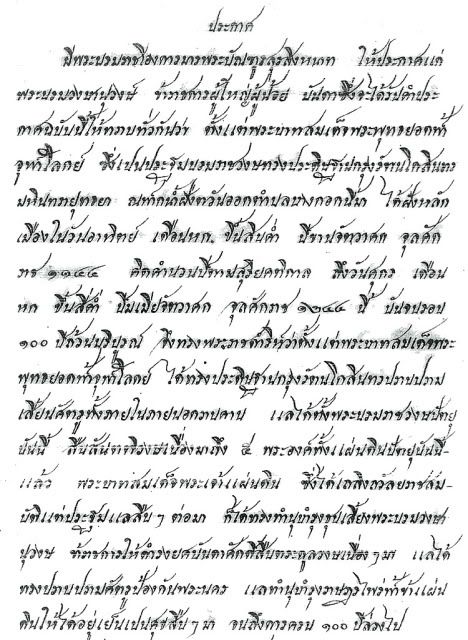 ประกาศ
มีพระบรมราชโองการมารพระบัณฑูรสุรสิงหนาท ให้ประกาศแก่
พระบรมวงษานุวงษ์ ข้าราชการผู้ใหญ่ผู้น้อย บันดาซึ่งจะได้รับคำประ
กาศฉบับนี้ให้ทราบทั่วกันว่า ตั้งแต่พระบาทสมเดจ์พระพุทธยอดฟ้า
จุฬาโลกย์ ซึ่งเปนประฐมบรมราชวงษทรงประดิษฐานกรุงรัตนโกสินทร
มหินทรายุทธยา ณฟากน้ำฝั่งตวันออกตำบลบางกอกนี้มา ได้ฝังหลัก
เมืองในวันอาทิตย์ เดือนหก ขึ้นสิบค่ำ ปีขาปจัตวาศก จุลศัก
ราช ๑๑๔๔ คิดคำนวนปีตามสุริยคติกาล ถึงวันศุกร เดือน
หก ขึ้นสี่ค่ำ ปีมเมียจัตวาศก จุลศักราช ๑๒๔๔ นี้ บันจบรอบ
๑๐๐ ปีถ้วนบริบูรณ จึงทรงพระราชดำริห์ว่าตั้งแต่พระบาทสมเด็จพระ
พุทธยอดฟ้าจุฬาโลกย์ ได้ทรงประดิษฐานกรุงรัตนโกสินทรปราบปราม
เสี้ยนศัตรูทั้งภายในภายนอกราบคาบ แลได้ตั้งพระบรมราชวงษปัตยุ
บันนี้ สืบสันตติวงษเนื่องมาถึง ๕ พระองค์ทั้งแผ่นดินปัตยุบันนี้
แล้ว พระบาทสมเด็จพระเจ้าแผ่นดิน ซึ่งได้เถลิงถวัลยราชสม
บัติแต่ประฐมแลสืบๆต่อมา ก็ได้ทรงทำนุบำรุงชุบเลี้ยงพระบรมวงษา
นุวงษ ข้าราชการให้ดำรงยศบันดาศักดิสืบตระกูลวงษเนื่องๆมา แลได้
ทรงปราบปรามศัตรูป้องกันพระนคร แลทำนุบำรุงราษฎรไพร่ฟ้าข้าแผ่น
ดินให้ได้อยู่เย็นเปนศุขสืบๆมา จนถึงการครบ ๑๐๐ ปีล่วงไป